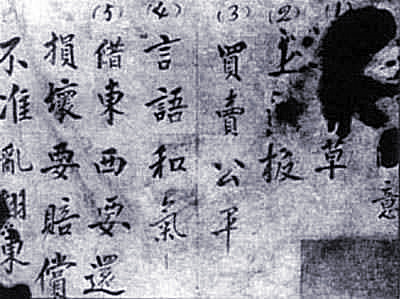 意
(1) 草
(2) 上 板
(3) 買賣公平
(4) 言語和氣
(5) 借東西要還
損壞要賠償
不准亂